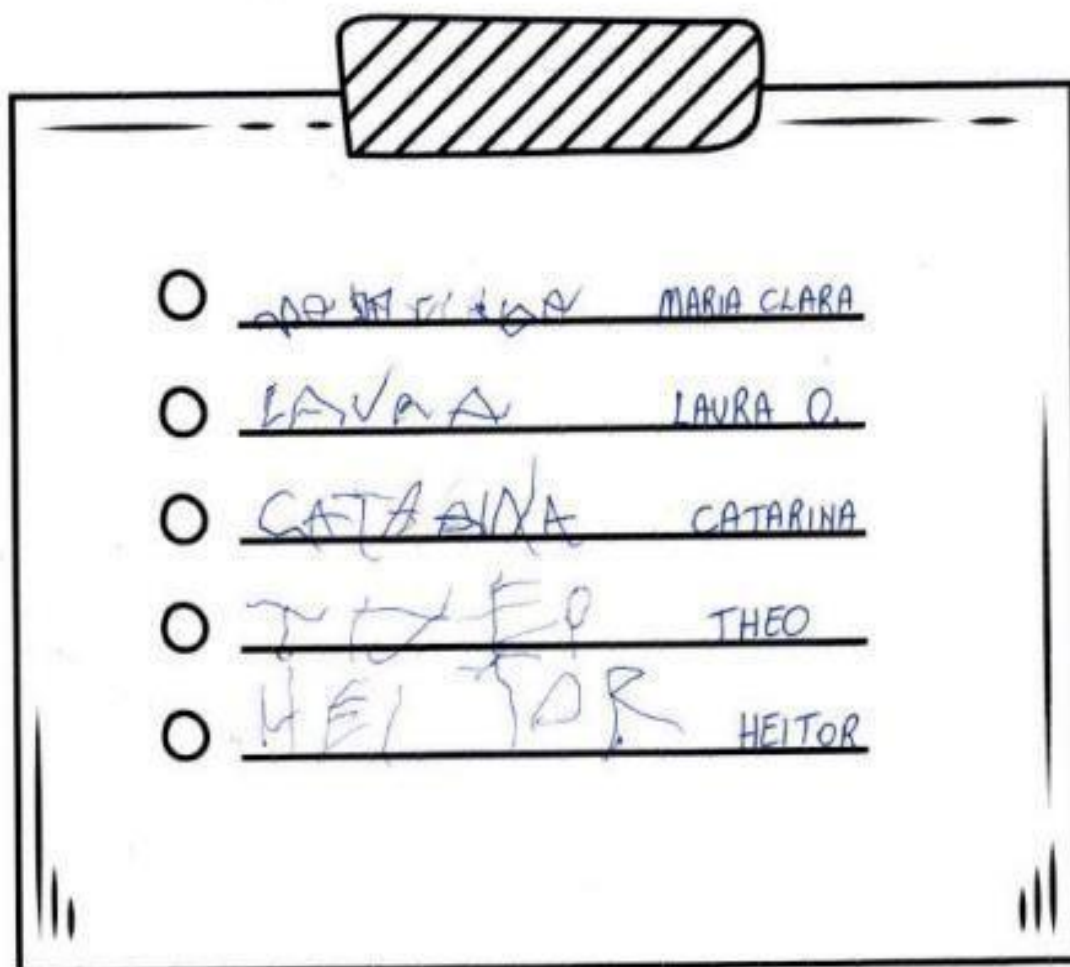 MARIA CLARA
LAVRA LAURA O.
CATARINA CATARINA
THEO
HEITOR HEITOR